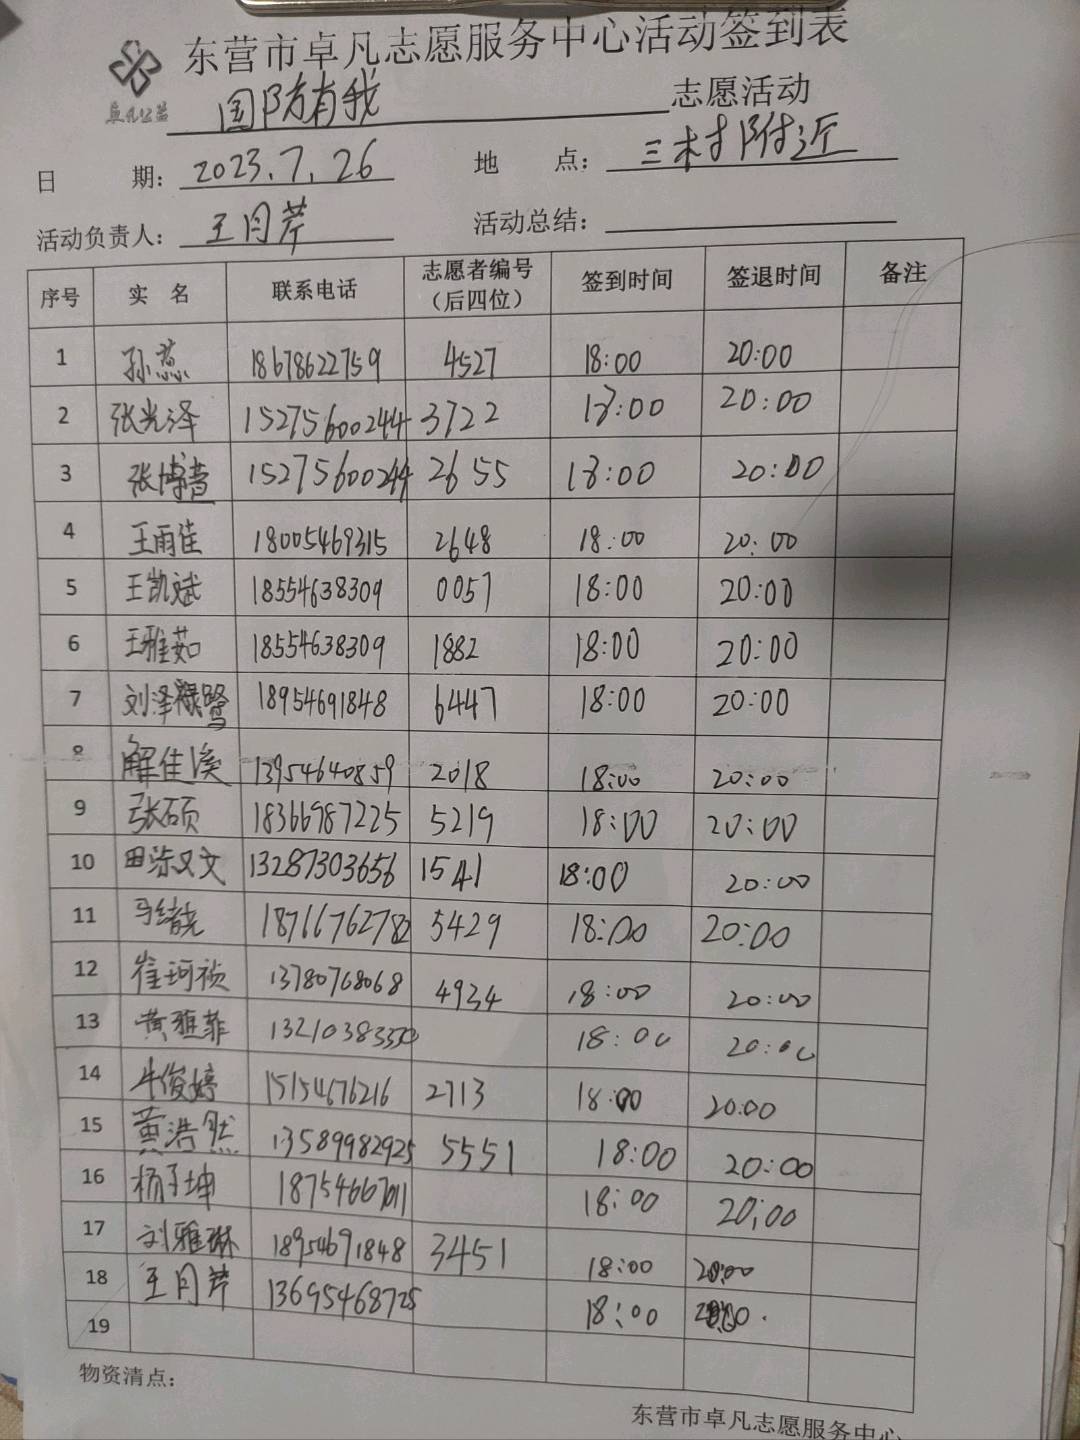 东营市卓凡志愿服务中心活动签到表
卓凡公益
国防有我 志愿活动
日 期: 2023.7.26 地 点: 三村附近
活动负责人: 王月芹 活动总结:
序号 实 名 联系电话 志愿者编号(后四位) 签到时间 签退时间 备注
1 孙蕊 18678622759 4527 18:00 20:00
2 张光泽 15275600244 3722 18:00 20:00
3 张博 15275600244 2655 18:00 20:00
4 王雨佳 18005469315 2648 18:00 20:00
5 王凯斌 18554638309 0057 18:00 20:00
6 王雅茹 18554638309 1882 18:00 20:00
7 刘泽 18954691848 6447 18:00 20:00
8 解佳溪 13954640859 2018 18:00 20:00
9 张硕 18366987225 5219 18:00 20:00
10 田 文 13287303656 1541 18:00 20:00
11 马绪尧 18766762782 5429 18:00 20:00
12 崔珂祯 13780768068 4934 18:00 20:00
13 黄雅菲 18:00 20:00
14 牛俊婷 15154676216 2713 18:00 20:00
15 黄浩然 13589982925 5551 18:00 20:00
16 杨子坤 18754667011 18:00 20:00
17 刘雅琳 18954691848 3451 18:00 20:00
18 王月芹 13695468725 18:00
19
物资清点:
东营市卓凡志愿服务中心